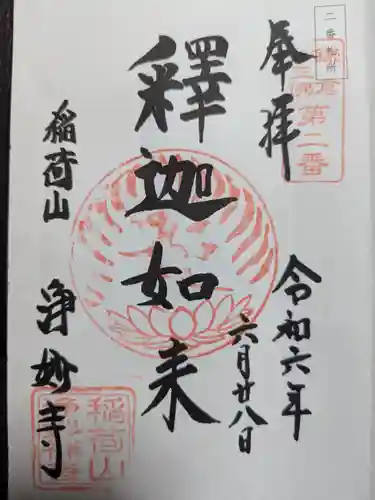 二番札所
第二番
奉拝
令和六年
六月廿八日
釋迦如来
稲荷山
浄妙寺
稲荷山